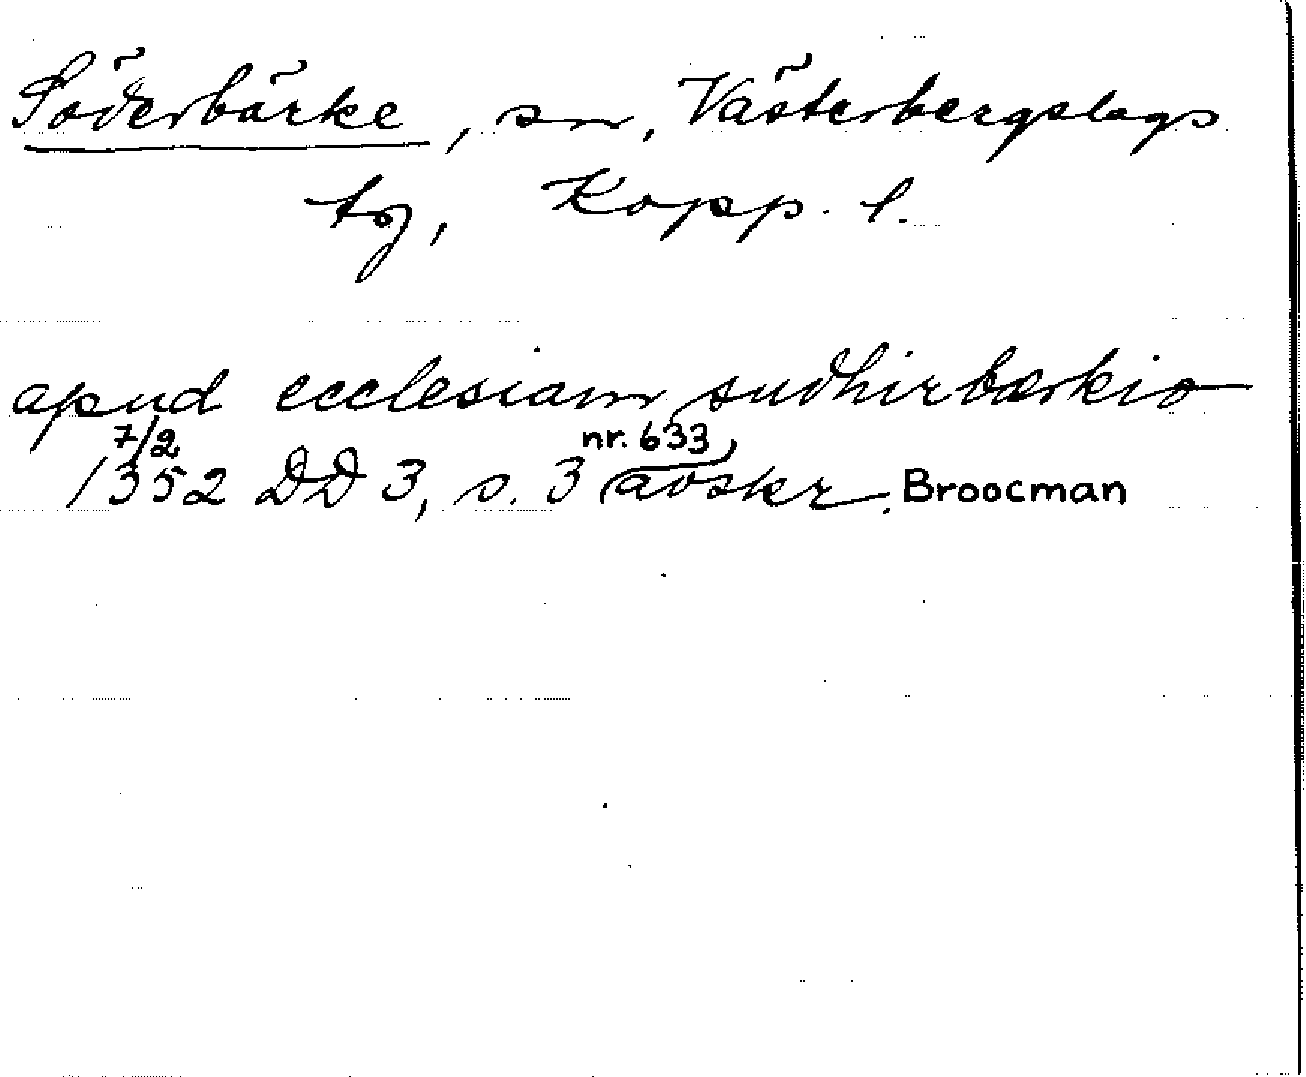 Söderbärke, sn, Västerbergslags
tg, Kopp. l.
apud ecclesiam sudhirbærkio
7/2 nr. 633
1352 DD 3, s. 3 avskr. Broocman